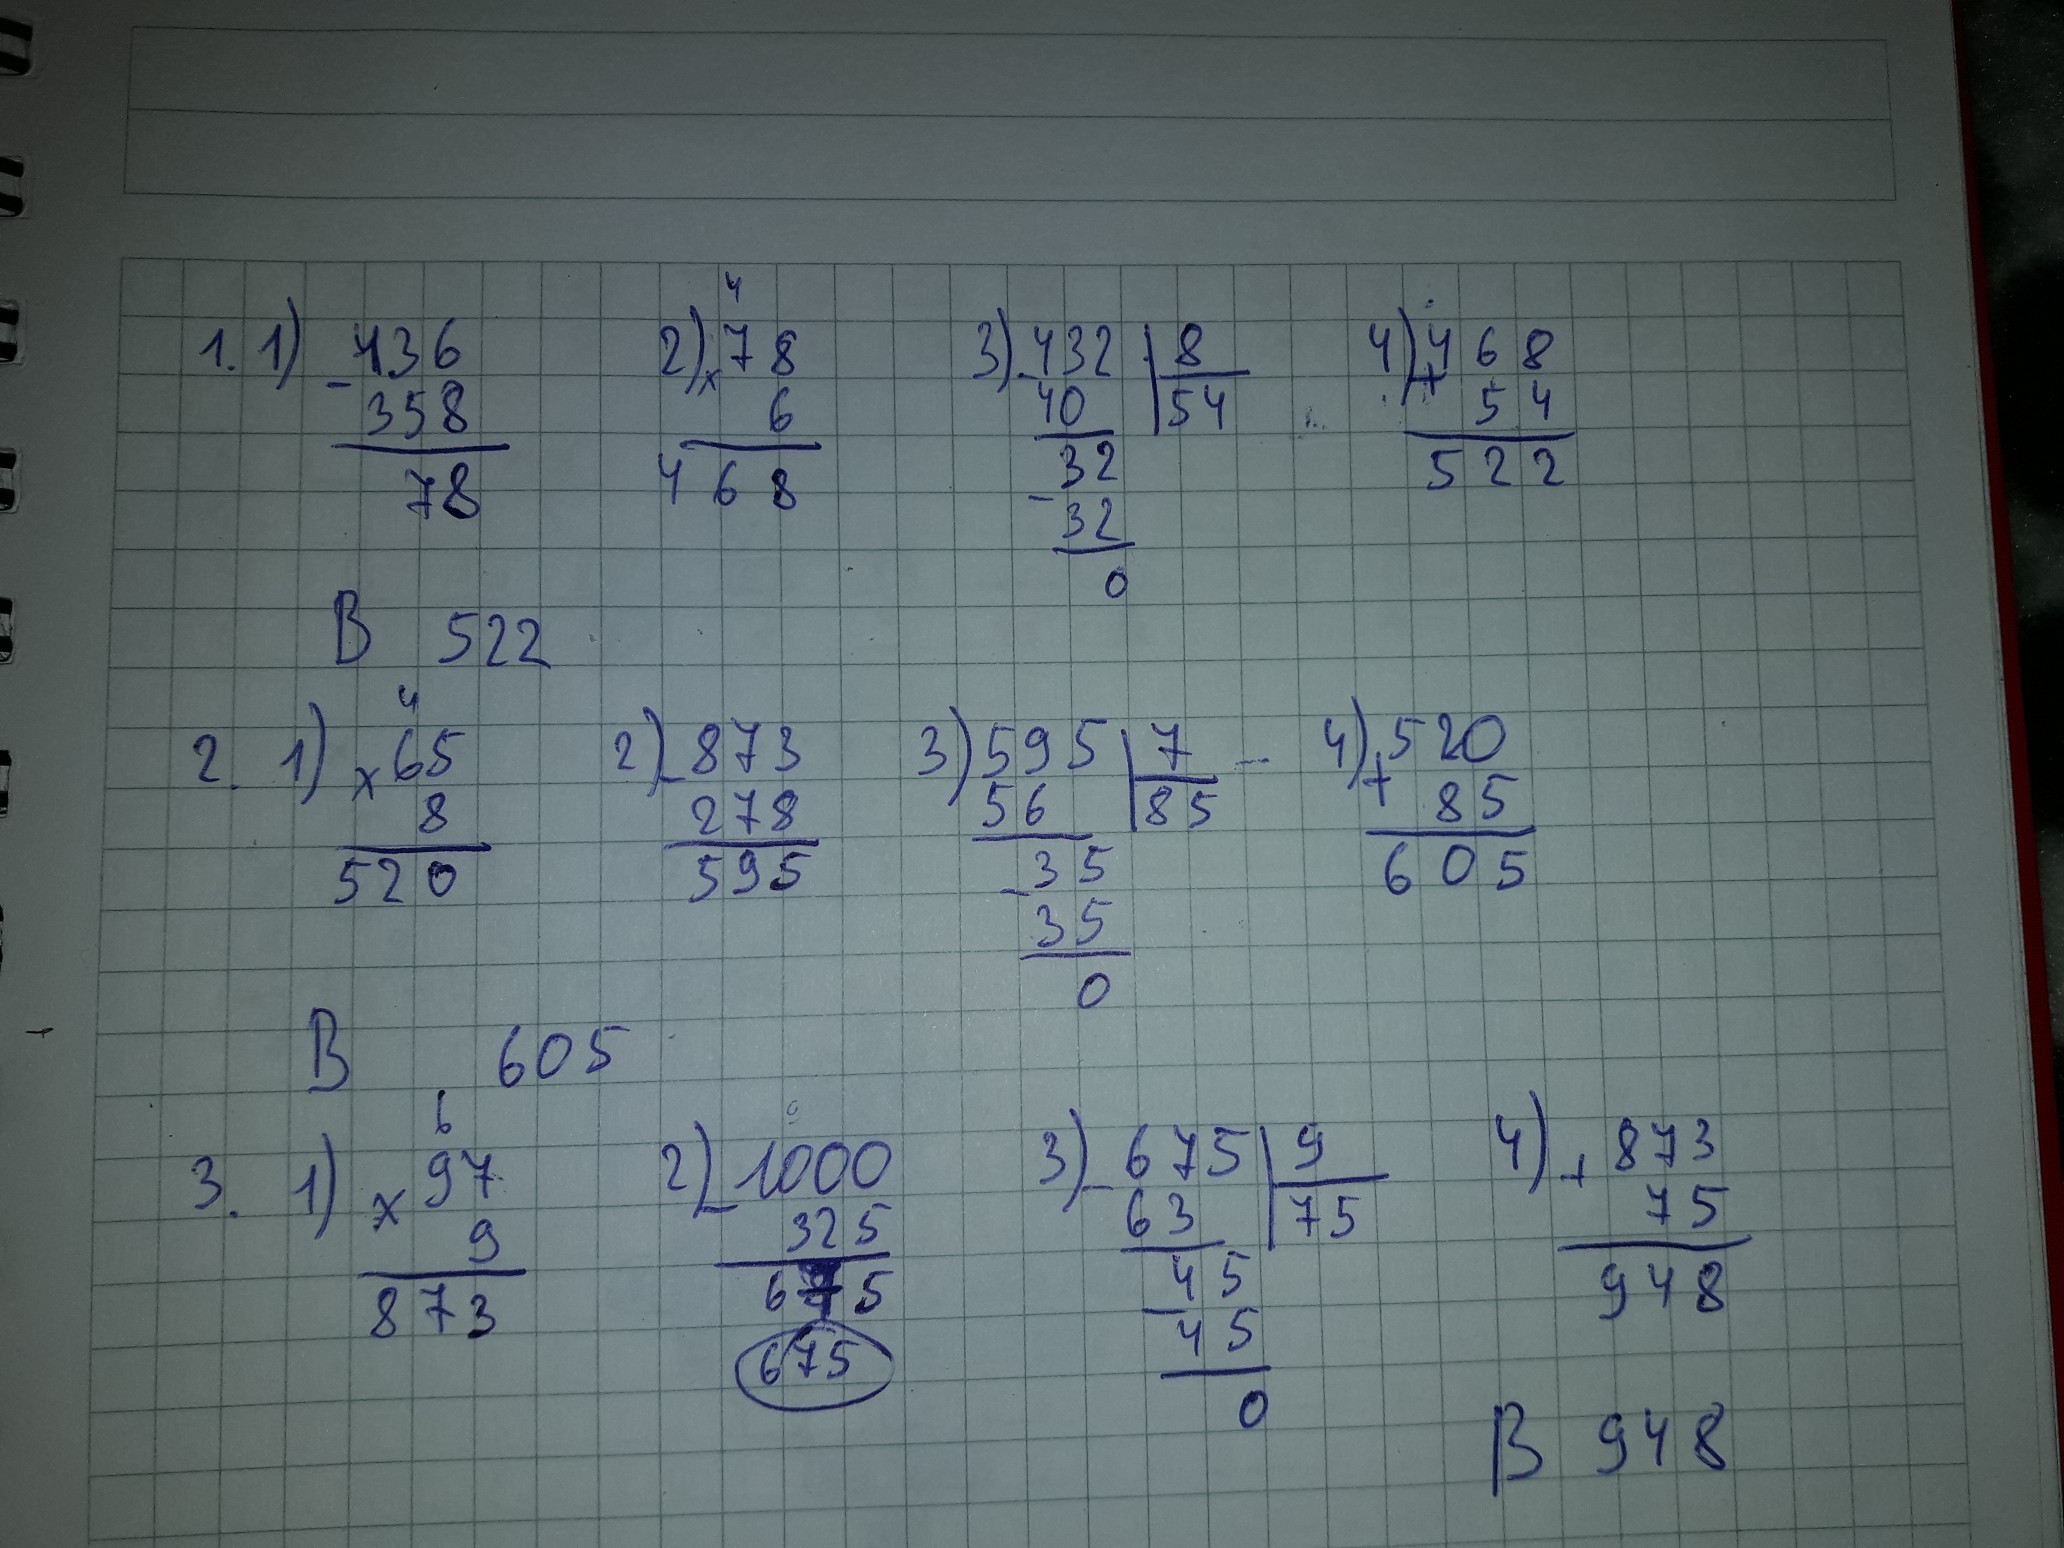 1. 1) 436 2) 78 3) 432 8 4) 468
4
- × - +
358 6 40 54 54
78 468 32 522
- 32
0
В 522
4
2. 1) × 65 2) - 873 3) 595 7 4) + 520
8 278 56 85 85
520 595 35 605
- 35
0
В 605
6
3. 1) × 97 2) - 1000 3) - 675 9 4) + 873
9 325 63 75 75
873 6 5 45 948
675 - 45
0
В 948